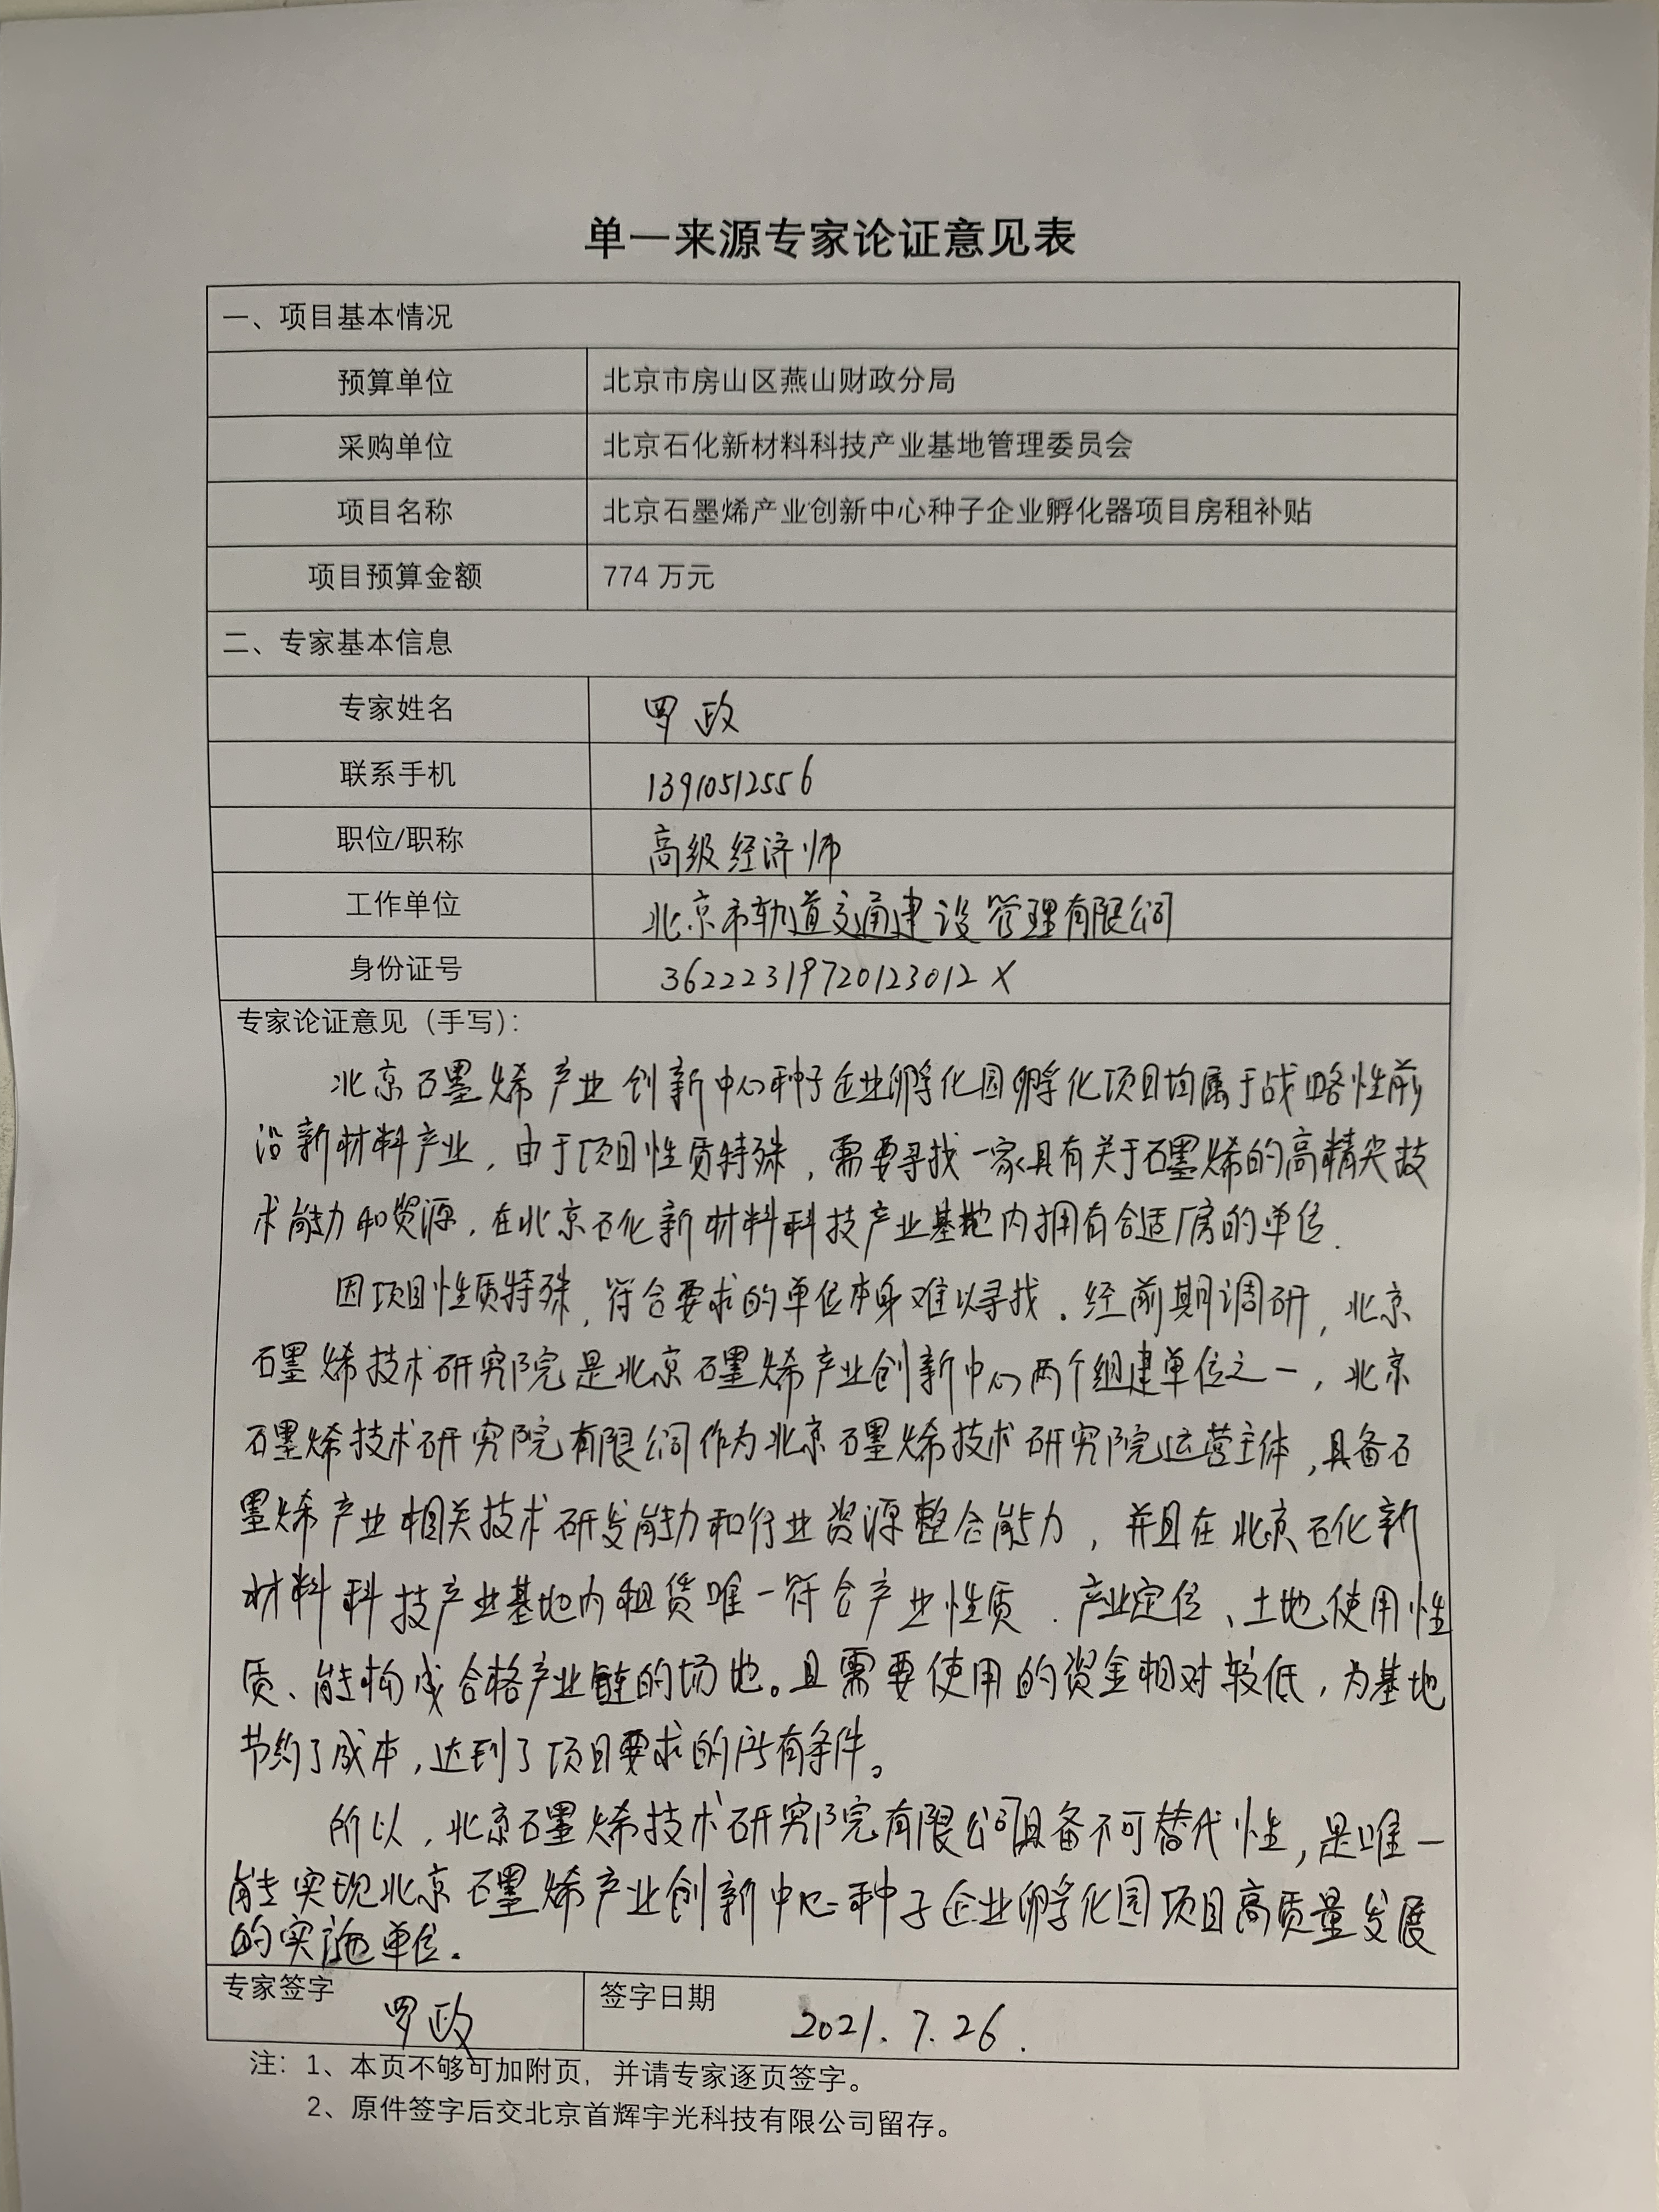 单一来源专家论证意见表
一、项目基本情况
预算单位 北京市房山区燕山财政分局
采购单位 北京石化新材料科技产业基地管理委员会
项目名称 北京石墨烯产业创新中心种子企业孵化器项目房租补贴
项目预算金额 774 万元
二、专家基本信息
专家姓名 罗政
联系手机 13910512556
职位/职称 高级经济师
工作单位 北京市轨道交通建设管理有限公司
身份证号 36222319720123012X
专家论证意见（手写）：
北京石墨烯产业创新中心种子企业孵化园孵化项目均属于战略性前
沿新材料产业，由于项目性质特殊，需要寻找一家具有关于石墨烯的高精尖技
术能力和资源，在北京石化新材料科技产业基地内拥有合适厂房的单位.
因项目性质特殊，符合要求的单位本身难以寻找．经前期调研，北京
石墨烯技术研究院是北京石墨烯产业创新中心两个组建单位之一，北京
石墨烯技术研究院有限公司作为北京石墨烯技术研究院运营主体，具备石
墨烯产业相关技术研发能力和行业资源整合能力，并且在北京石化新
材料科技产业基地内租赁唯一符合产业性质．产业定位、土地使用性
质、能构成合格产业链的场地。且需要使用的资金相对较低，为基地
节约了成本，达到了项目要求的所有条件。
所以，北京石墨烯技术研究院有限公司具备不可替代性，是唯一
能实现北京石墨烯产业创新中心种子企业孵化园项目高质量发展
的实施单位.
专家签字 罗政 签字日期 2021.7.26.
注：1、本页不够可加附页，并请专家逐页签字。
2、原件签字后交北京首辉宇光科技有限公司留存。